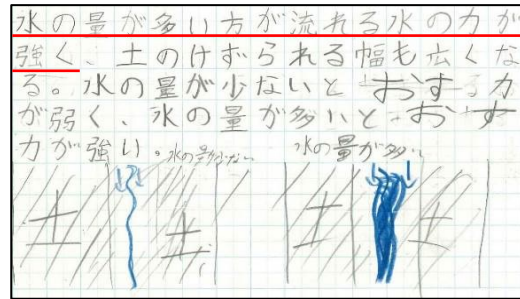 水の量が多い方が流れる水の力が
強く、土のけずられる幅も広くな
る。水の量が少ないと おす 力
が弱く、水の量が多いと おす
力が強い。
水の量が少ない
水の量が多い
土
土
土
土